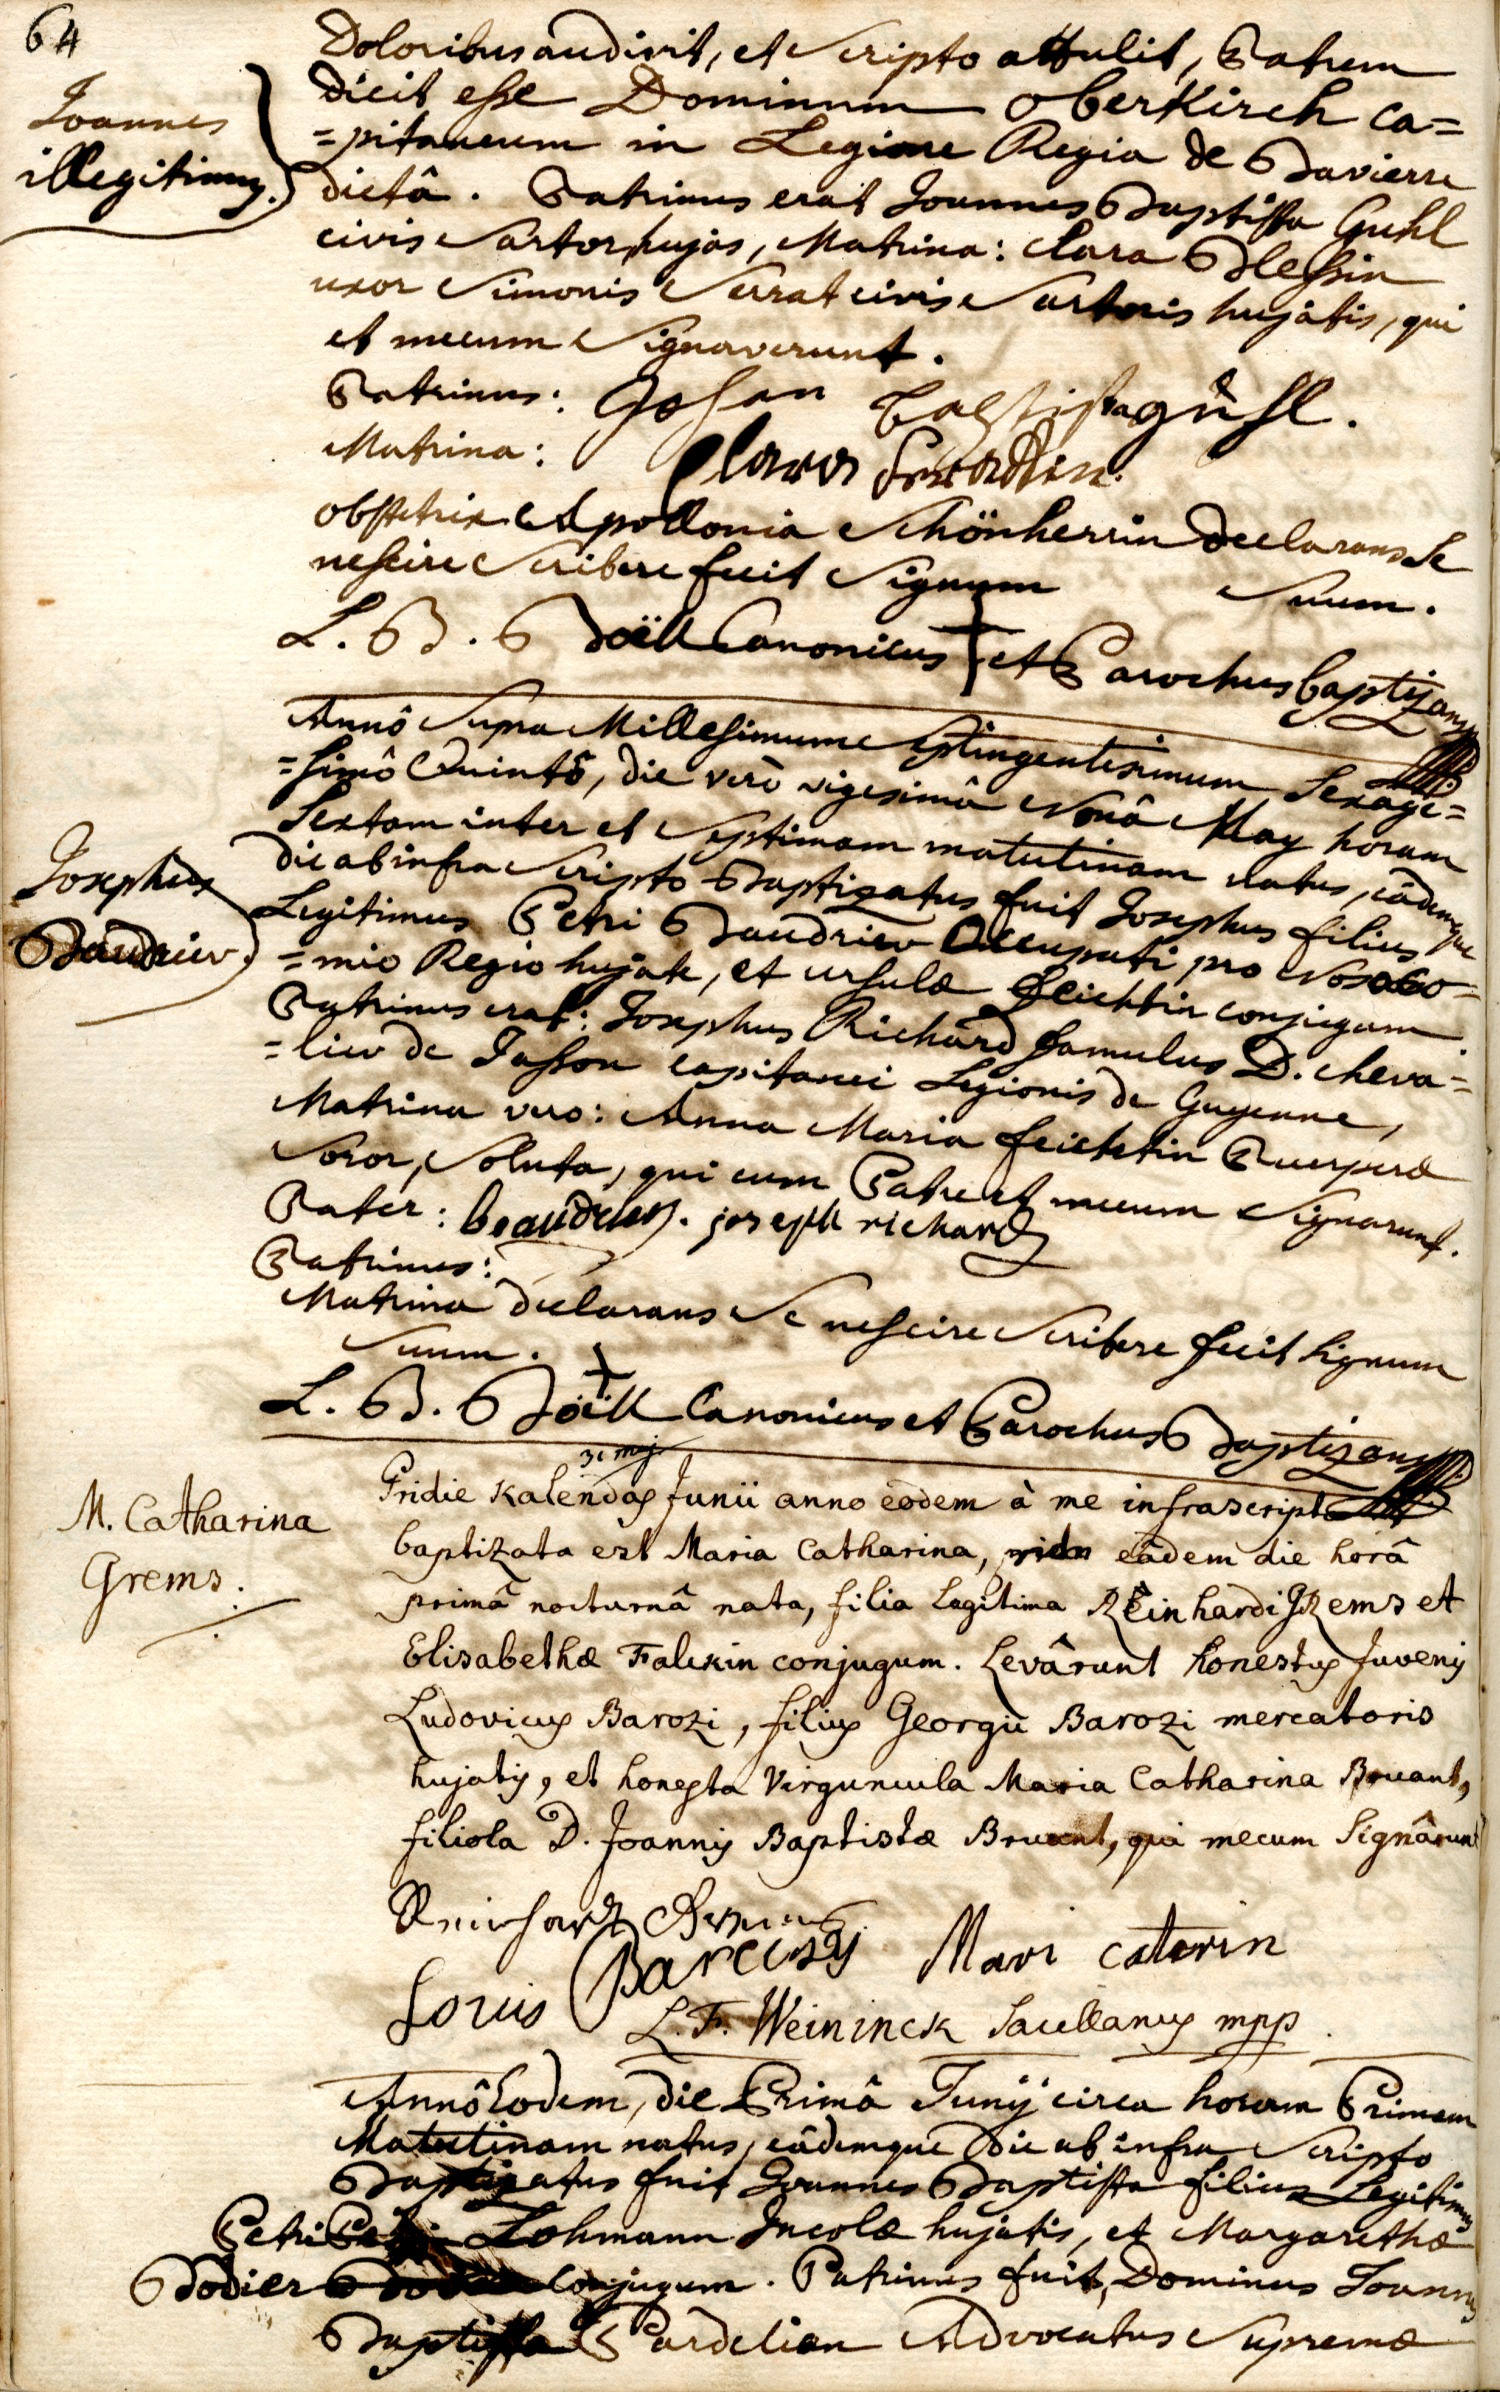 64
Doloribus audivit, et Scripto attulit, Patrem
Joannes
illegitimus.
dicit esse Dominum Oberkirch ca=
=pitaneum in Legione Regia de Bavierre
dictâ. Patrinus erat Joannes Baptista Guhl
civis Sartor hujas, Matrina: Clara Blessin
uxor Simonis Serrat civis Sartoris hujatis, qui
et mecum Signaverunt.
Patrinus: Johan Baptista gühl.
Matrina: Clara
obstetrix Apollonia Schönherrin declarans Se
nescire Scribere fecit Signum Suum.
L. B. Boëll Canonicus et Parochus baptizans
Annô Supra Millesimum Septingentesimum Sexage=
=simô Quintô, die verò vigesimâ Nonâ May horam
Sextam inter et Septimam matutinam natus, eâdemque
Josephus
Baudrier.
die ab infra Scripto Baptizatus fuit Josephus filius
Legitimus Petri Baudrier Occupati pro Nosoco=
=mio Regio hujate, et ursulæ feichtin conjugum.
Patrinus erat: Josephus Richard famulus D. cheva=
=lier de Jasson capitanei Legionis de Guyenne,
Matrina vero: Anna Maria feichtin Puerperæ
Soror, Soluta, qui cum Patre et mecum Signarunt.
Pater: beaudrier. joseph richard
Patrinus:
Matrina declarans Se nescire Scribere fecit Signum
Suum.
L. B. Boëll Canonicus et Parochus Baptizans
31 maj
M. Catharina
Grems.
Pridie Kalendas Junii anno eodem à me infrascripto
baptizata est Maria Catharina, eâdem die horâ
primâ nocturnâ nata, filia legitima Reinhardi Grems et
Elisabethæ Falckin conjugum. Levârunt honestus Juvenis
Ludovicus Barozi, filius Georgii Barozi mercatoris
hujatis, et honesta Virguncula Maria Catharina Bruant,
filiola D. Joannis Baptistæ Bruant, qui mecum Signârunt
Reinhard
Louis Mari caterin
L. F. Weininck Sacellanus mpp.
Annô Eodem, die Primâ Junij circa horam Primam
Matutinam natus, eâdemque die ab infra Scripto
Baptizatus fuit Joannes Baptista filius Legitimus
Petri Lohmann Incolæ hujatis, et Margarethæ
Bodier conjugum. Patrinus fuit, Dominus Joannes
Baptista Pardelian Advocatus Supremæ